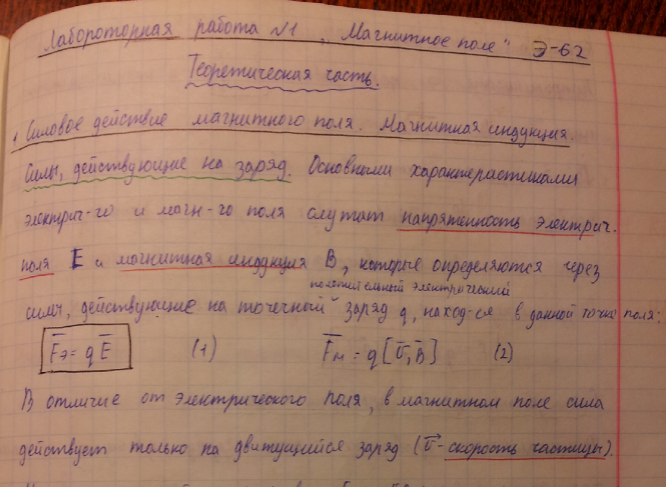 Лабороторная работа №1 „Магнитное поле" Э-62
Теоретическая часть.
Силовое действие магнитного поля. Магнитная индукция
Силы, действующие на заряд. Основными характеристиками
электрич-го и магн-го поля служат напряженность электрич.
поля E и магнитная индукция B, которые определяются через
положительный электрический
силы, действующие на точечный заряд q, наход-ся в данной точке поля:
F̅э = q E̅ (1) F̅м = q [v̅, B̅] (2)
В отличие от электрического поля, в магнитном поле сила
действует только на движущийся заряд (v̅ - скорость частицы).